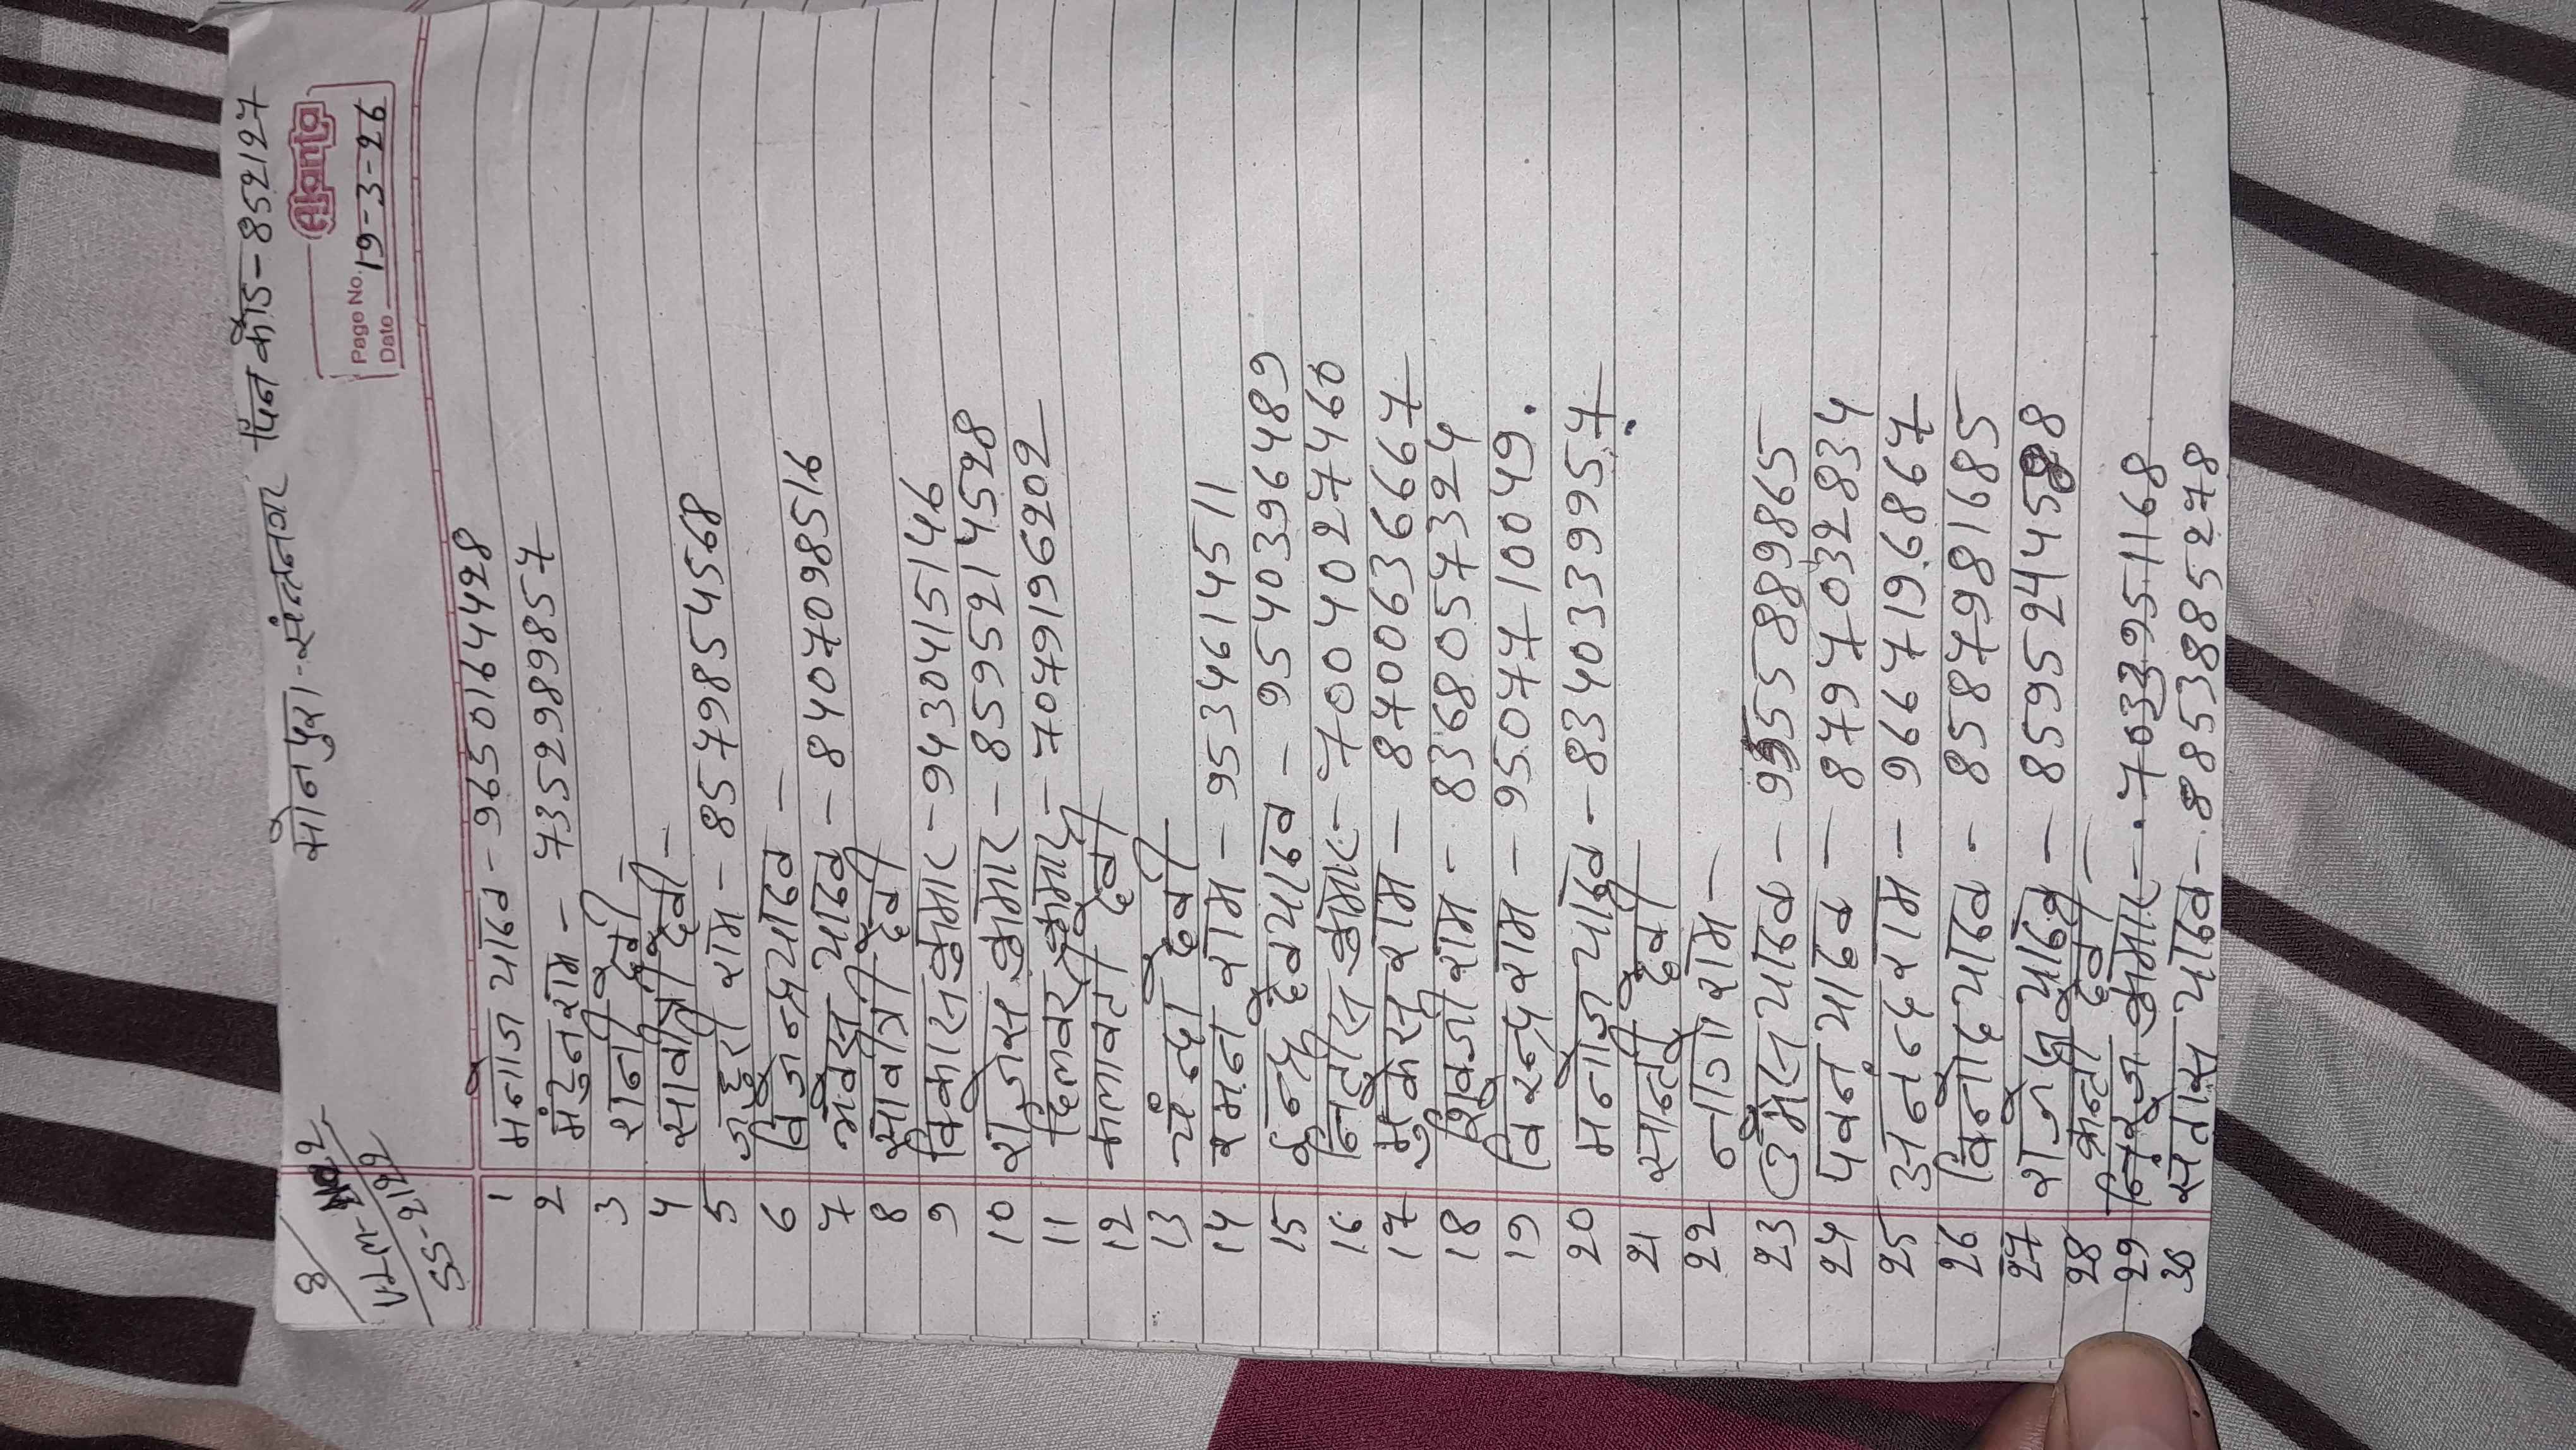 सोनपुरा - संतनगर पिन कोड - 852127
8
VLM-2
SS-2122
Ajanta
Page No.
Date 19-3-26
1 मनोज यादव - 9650164428
2 मंटुन राम - 7352989857
3 रानी देवी
4 सावित्री देवी -
5 राम - 8579854568
6 विजेन्द्र यादव -
7 यादव - 8407098516
8 सावित्री देवी
9 विकास कुमार - 9430415146
10 राजेस कुमार - 8595214528
11 दिलवर कुमार - 7079196202
12 कलावती देवी
13 चन्दा देवी
14 रमन राम - 9534614511
15 देव यादव - 9540396489
16 नितीस कुमार - 7004027460
17 मुकेस राम - 8700636667
18 शिवजी राम - 8368057324
19 विरेन्द्र राम - 9507710049.
20 मनोज यादव - 8340339957
21 सान्ती देवी
22 राम -
23 उमेस यादव - 9955889865
24 पवन यादव - 8797032834
25 अनन्द राम - 9667196867
26 विनोद यादव - 8587981685
27 यादव - 8595244528
28 देवी -
29 कुमार - 7033951168
30 संतोस यादव - 8853885278